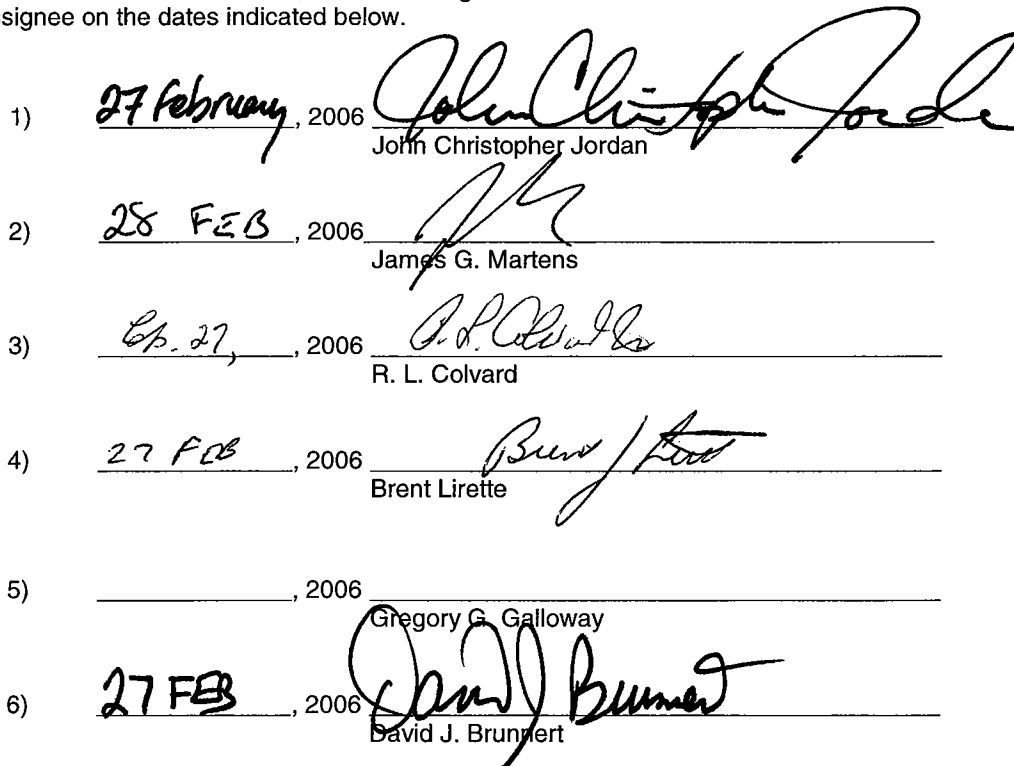 signee on the dates indicated below.
1) 27 February, 2006 John Christopher Jorda
John Christopher Jordan
2) 28 FEB, 2006
James G. Martens
3) 27, , 2006 R. L. Colvard
R. L. Colvard
4) 27 FEB, 2006 Brent J Lirette
Brent Lirette
5) , 2006
Gregory G. Galloway
6) 27 FEB, 2006 David J Brunnert
David J. Brunnert